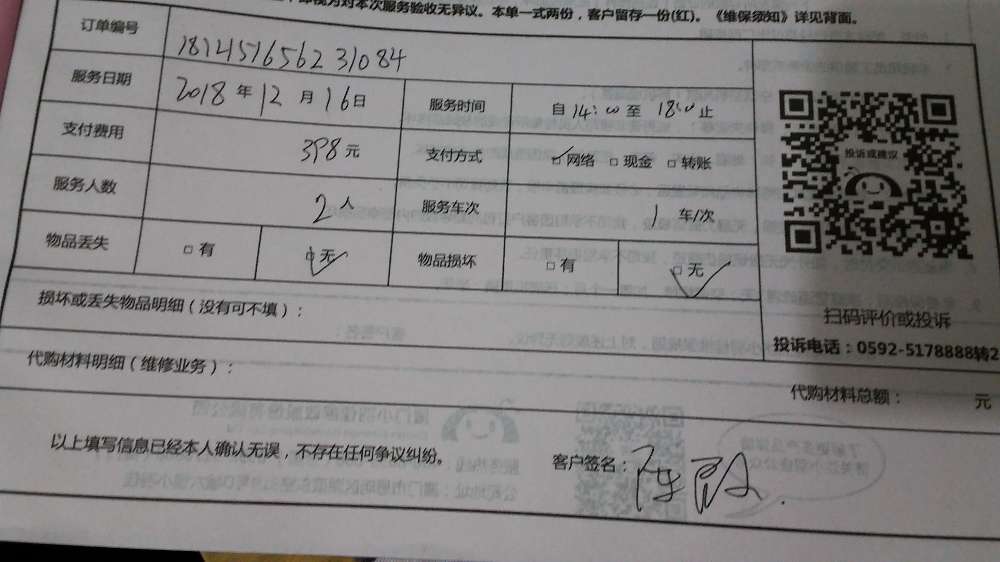 视为对本次服务验收无异议。本单一式两份，客户留存一份(红)。《维保须知》详见背面。
订单编号 181457656231084
服务日期 2018年12月16日 服务时间 自14:00至18:00止
支付费用 398元 支付方式 ☑网络 □现金 □转账
服务人数 2人 服务车次 1车/次
物品丢失 □有 ☑无 物品损坏 □有 ☑无
投诉或建议
扫码评价或投诉
投诉电话：0592-5178888转2
损坏或丢失物品明细（没有可不填）：
代购材料明细（维修业务）：
代购材料总额： 元
以上填写信息已经本人确认无误，不存在任何争议纠纷。
客户签名：陈